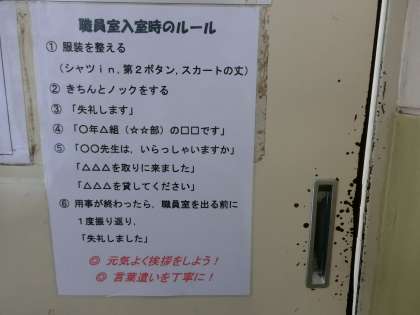 職員室入室時のルール
① 服装を整える
（シャツｉｎ,第２ボタン,スカートの丈）
② きちんとノックをする
③ 「失礼します」
④ 「〇年△組（☆☆部）の□□です」
⑤ 「〇〇先生は、いらっしゃいますか」
「△△△を取りに来ました」
「△△△を貸してください」
⑥ 用事が終わったら、職員室を出る前に
１度振り返り、
「失礼しました」
◎ 元気よく挨拶をしよう！
◎ 言葉遣いを丁寧に！